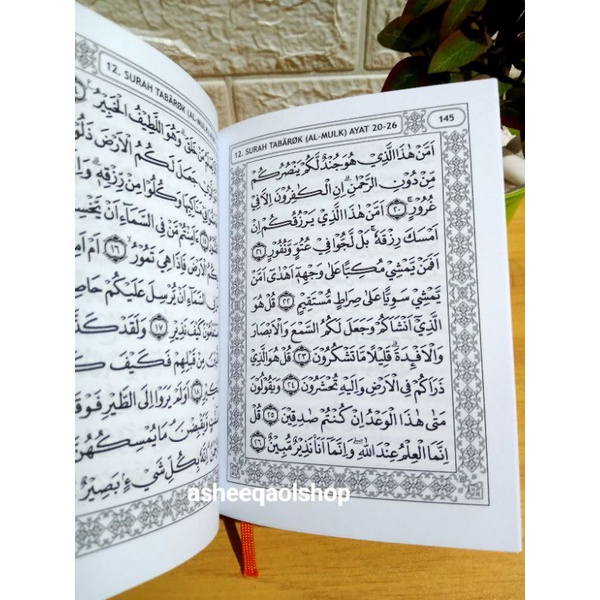 12. SURAH TABĀRØK (AL-MULK) AYAT 20-26
145
اَمَّنْ هٰذَا الَّذِيْ هُوَ جُنْدٌ لَّكُمْ يَنْصُرُكُمْ
مِّنْ دُوْنِ الرَّحْمٰنِۗ اِنِ الْكٰفِرُوْنَ اِلَّا فِيْ
غُرُوْرٍۚ ﴿٢٠﴾ اَمَّنْ هٰذَا الَّذِيْ يَرْزُقُكُمْ اِنْ
اَمْسَكَ رِزْقَهٗ ۚ بَلْ لَّجُّوْا فِيْ عُتُوٍّ وَّنُفُوْرٍ ﴿٢١﴾
اَفَمَنْ يَّمْشِيْ مُكِبًّا عَلٰى وَجْهِهٖٓ اَهْدٰىٓ اَمَّنْ
يَّمْشِيْ سَوِيًّا عَلٰى صِرَاطٍ مُّسْتَقِيْمٍ ﴿٢٢﴾ قُلْ هُوَ
الَّذِيْٓ اَنْشَاَكُمْ وَجَعَلَ لَكُمُ السَّمْعَ وَالْاَبْصَارَ
وَالْاَفْـِٕدَةَۗ قَلِيْلًا مَّا تَشْكُرُوْنَ ﴿٢٣﴾ قُلْ هُوَ الَّذِيْ
ذَرَاَكُمْ فِى الْاَرْضِ وَاِلَيْهِ تُحْشَرُوْنَ ﴿٢٤﴾ وَيَقُوْلُوْنَ
مَتٰى هٰذَا الْوَعْدُ اِنْ كُنْتُمْ صٰدِقِيْنَ ﴿٢٥﴾ قُلْ
اِنَّمَا الْعِلْمُ عِنْدَ اللّٰهِ ۖ وَاِنَّمَآ اَنَا۠ نَذِيْرٌ مُّبِيْنٌ ﴿٢٦﴾
12. SURAH TABĀRØK (AL-MULK)
مَنْ خَلَقَۗ وَهُوَ اللَّطِيْفُ الْخَبِيْرُ
جَعَلَ لَكُمُ الْاَرْضَ ذَلُوْلًا
مَنَاكِبِهَا وَكُلُوْا مِنْ رِّزْقِهٖۗ
ءَاَمِنْتُمْ مَّنْ فِى السَّمَاۤءِ اَنْ يَّخْسِفَ
الْاَرْضَ فَاِذَا هِيَ تَمُوْرُۙ ﴿١٦﴾ اَمْ اَمِنْتُمْ
السَّمَاۤءِ اَنْ يُّرْسِلَ عَلَيْكُمْ حَاصِبًا
كَيْفَ نَذِيْرِ ﴿١٧﴾ وَلَقَدْ كَذَّبَ
مِنْ قَبْلِهِمْ فَكَيْفَ كَانَ
﴿١٨﴾ اَوَلَمْ يَرَوْا اِلَى الطَّيْرِ فَوْقَهُمْ
وَّيَقْبِضْنَۘ مَا يُمْسِكُهُنَّ
اِنَّهٗ بِكُلِّ شَيْءٍۢ بَصِيْرٌ
asheeqaolshop